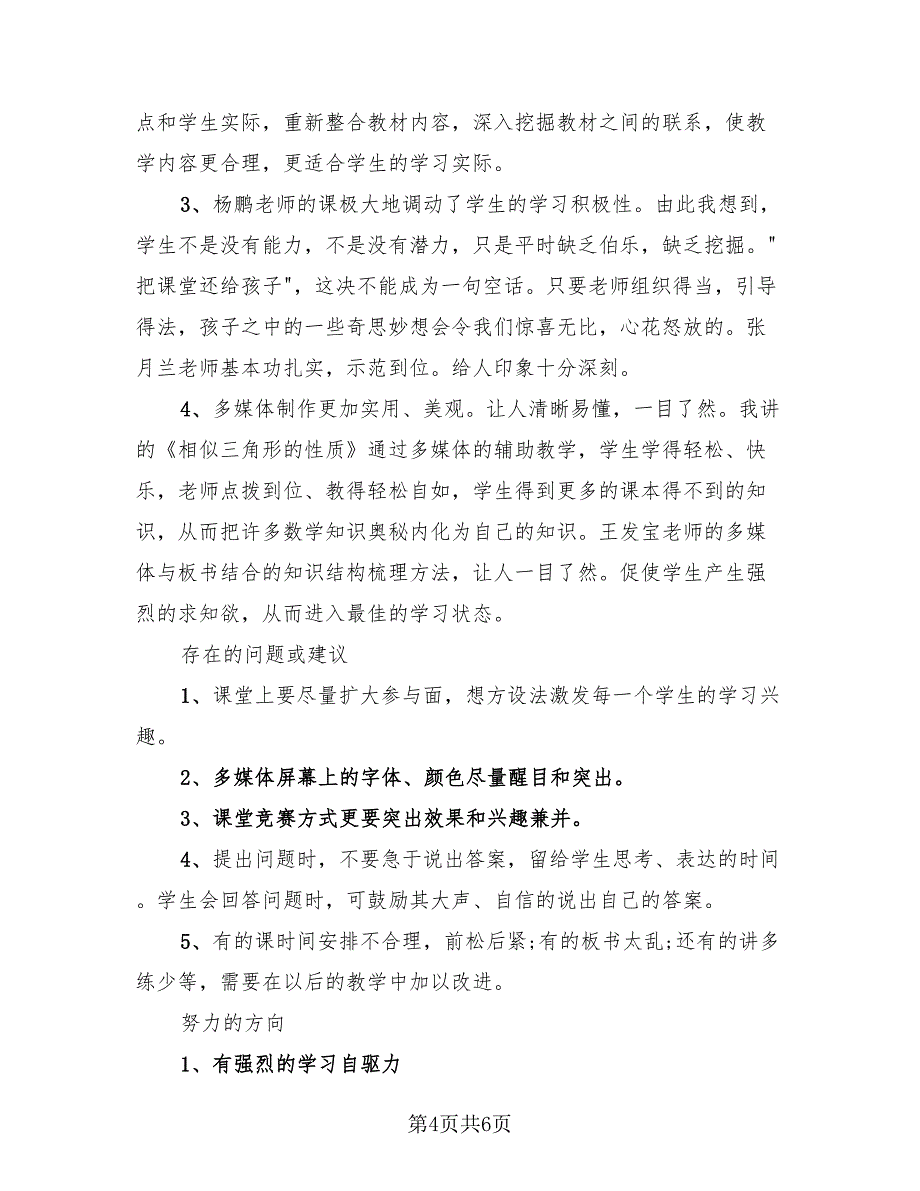 点和学生实际，重新整合教材内容，深入挖掘教材之间的联系，使教
学内容更合理，更适合学生的学习实际。
3、杨鹏老师的课极大地调动了学生的学习积极性。由此我想到，
学生不是没有能力，不是没有潜力，只是平时缺乏伯乐，缺乏挖掘。"
把课堂还给孩子"，这决不能成为一句空话。只要老师组织得当，引导
得法，孩子之中的一些奇思妙想会令我们惊喜无比，心花怒放的。张
月兰老师基本功扎实，示范到位。给人印象十分深刻。
4、多媒体制作更加实用、美观。让人清晰易懂，一目了然。我讲
的《相似三角形的性质》通过多媒体的辅助教学，学生学得轻松、快
乐，老师点拨到位、教得轻松自如，学生得到更多的课本得不到的知
识，从而把许多数学知识奥秘内化为自己的知识。王发宝老师的多媒
体与板书结合的知识结构梳理方法，让人一目了然。促使学生产生强
烈的求知欲，从而进入最佳的学习状态。
存在的问题或建议
1、课堂上要尽量扩大参与面，想方设法激发每一个学生的学习兴
趣。
2、多媒体屏幕上的字体、颜色尽量醒目和突出。
3、课堂竞赛方式更要突出效果和兴趣兼并。
4、提出问题时，不要急于说出答案，留给学生思考、表达的时间
。学生会回答问题时，可鼓励其大声、自信的说出自己的答案。
5、有的课时间安排不合理，前松后紧;有的板书太乱;还有的讲多
练少等，需要在以后的教学中加以改进。
努力的方向
1、有强烈的学习自驱力
第4页共6页